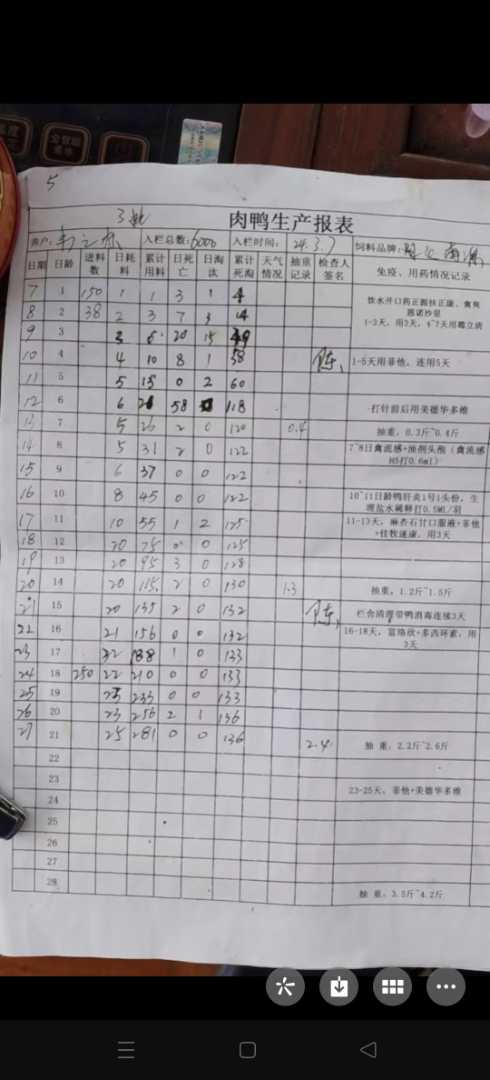 5
3批
肉鸭生产报表
入栏总数:6000 入栏时间: 24.3.7 饲料品牌:
日期 日龄 进料数 日耗料 累计用料 日死亡 日淘汰 累计死淘 天气情况 抽重记录 检查人签名 免疫、用药情况记录
7 1 150 1 1 3 1 4 饮水开口药正源扶正康、禽爽
8 2 38 2 3 7 3 14 恩诺沙星
1-3天、用3天,4~7天用霉立清
9 3 3 6 20 15 49
10 4 4 10 8 1 58 陈 1-5天用菲他,连用5天
11 5 5 15 0 2 60
12 6 6 21 58 118 打针前后用美德华多维
13 7 5 26 2 0 120 0.4 抽重,0.3斤~0.4斤
14 8 5 31 2 0 122 7~8日禽流感+油剂头孢(禽流感H5打0.6ml)
15 9 6 37 0 0 122
16 10 8 45 0 0 122 10~11日龄鸭肝炎1号1头份,生理盐水稀释打0.5ML/羽
17 11 10 55 1 2 125 11-13天,麻杏石甘口服液+菲他+佳牧速康,用3天
18 12 20 75 0 0 125
19 13 20 95 3 0 128
20 14 20 115 2 0 130 1.3 抽重,1.2斤~1.5斤
21 15 20 135 2 0 132 陈 栏舍清理带鸭消毒连续3天
22 16 21 156 0 0 132 16-18天,富络欣+多西环素,用3天
23 17 32 188 1 0 133
24 18 250 22 210 0 0 133
25 19 23 233 0 0 133
26 20 23 256 2 1 136
27 21 25 281 0 0 136 2.4 抽 重,2.2斤~2.6斤
22
23
24 23-25天,菲他+美德华多维
25
26
27
28 抽 重,3.5斤~4.2斤